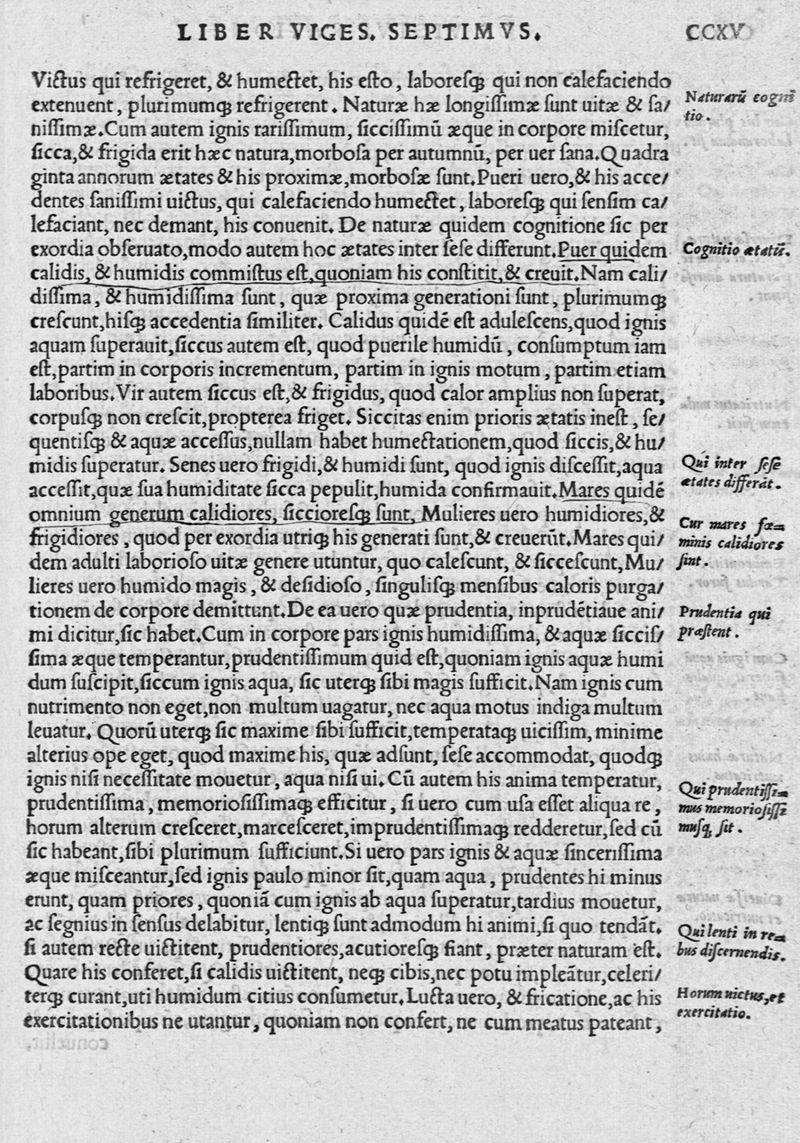 LIBER VIGES. SEPTIMVS.
CCXV
Victus qui refrigeret, & humectet, his esto, laboresqꝫ qui non calefaciendo
extenuent, plurimumqꝫ refrigerent. Naturæ hæ longissimæ sunt uitæ & sa/
nissimæ. Cum autem ignis rarissimum, siccissimū æque in corpore miscetur,
sicca, & frigida erit hæc natura, morbosa per autumnū, per uer sana. Quadra
ginta annorum ætates & his proximæ, morbosæ sunt. Pueri uero, & his acce/
dentes sanissimi uictus, qui calefaciendo humectet, laboresqꝫ qui sensim ca/
lefaciant, nec demant, his conuenit. De naturæ quidem cognitione sic per
exordia obseruato, modo autem hoc ætates inter sese differunt. Puer quidem
calidis, & humidis commistus est, quoniam his constitit, & creuit. Nam cali/
dissima, & humidissima sunt, quæ proxima generationi sunt, plurimumqꝫ
crescunt, hisqꝫ accedentia similiter. Calidus quidē est adulescens, quod ignis
aquam superauit, siccus autem est, quod puerile humidū, consumptum iam
est, partim in corporis incrementum, partim in ignis motum, partim etiam
laboribus. Vir autem siccus est, & frigidus, quod calor amplius non superat,
corpusqꝫ non crescit, propterea friget. Siccitas enim prioris ætatis inest, se/
quentisqꝫ & aquæ accessus, nullam habet humectationem, quod siccis, & hu/
midis superatur. Senes uero frigidi, & humidi sunt, quod ignis discessit, aqua
accessit, quæ sua humiditate sicca pepulit, humida confirmauit. Mares quidē
omnium generum calidiores, siccioresqꝫ sunt, Mulieres uero humidiores, &
frigidiores, quod per exordia utriqꝫ his generati sunt, & creuerūt. Mares qui/
dem adulti laborioso uitæ genere utuntur, quo calescunt, & siccescunt, Mu/
lieres uero humido magis, & desidioso, singulisqꝫ mensibus caloris purga/
tionem de corpore demittunt. De ea uero quæ prudentia, inprudētiaue ani/
mi dicitur, sic habet. Cum in corpore pars ignis humidissima, & aquæ siccis/
sima æque temperantur, prudentissimum quid est, quoniam ignis aquæ humi
dum suscipit, siccum ignis aqua, sic uterqꝫ sibi magis sufficit. Nam ignis cum
nutrimento non eget, non multum uagatur, nec aqua motus indiga multum
leuatur. Quorū uterqꝫ sic maxime sibi sufficit, temperataqꝫ uicissim, minime
alterius ope eget, quod maxime his, quæ adsunt, sese accommodat, quodqꝫ
ignis nisi necessitate mouetur, aqua nisi ui. Cū autem his anima temperatur,
prudentissima, memoriosissimaqꝫ efficitur, si uero cum usa esset aliqua re,
horum alterum cresceret, marcesceret, imprudentissimaqꝫ redderetur, sed cū
sic habeant, sibi plurimum sufficiunt. Si uero pars ignis & aquæ sincerissima
æque misceantur, sed ignis paulo minor sit, quam aqua, prudentes hi minus
erunt, quam priores, quoniā cum ignis ab aqua superatur, tardius mouetur,
ac segnius in sensus delabitur, lentiqꝫ sunt admodum hi animi, si quo tendāt.
si autem recte uictitent, prudentiores, acutioresqꝫ fiant, præter naturam est.
Quare his conferet, si calidis uictitent, neqꝫ cibis, nec potu impleātur, celeri/
terqꝫ curant, uti humidum citius consumetur. Lucta uero, & fricatione, ac his
exercitationibus ne utantur, quoniam non confert, ne cum meatus pateant,
Naturarū cogni
tio.
Cognitio ætatū.
Qui inter sese
ætates differāt.
Cur mares fœ=
minis calidiores
sint.
Prudentia qui
præstent.
Qui prudentissi=
mus memoriosissi
musqꝫ sit.
Qui lenti in re=
bus discernendis.
Horum uictus, et
exercitatio.